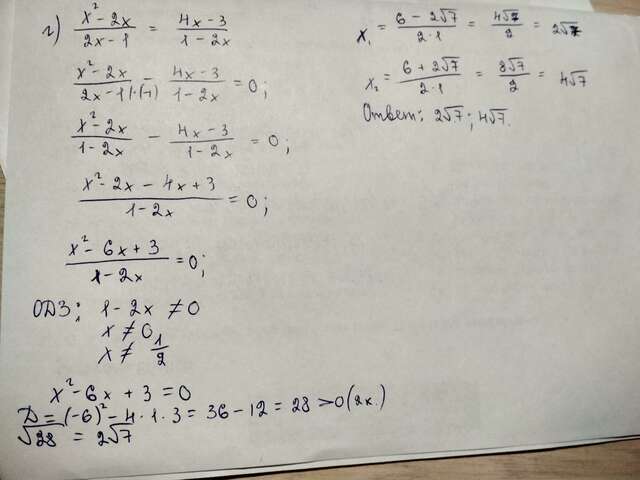 г) x² - 2x / 2x - 1 = 4x - 3 / 1 - 2x
x² - 2x / 2x - 1 |·(-1) - 4x - 3 / 1 - 2x = 0;
x² - 2x / 1 - 2x - 4x - 3 / 1 - 2x = 0;
x² - 2x - 4x + 3 / 1 - 2x = 0;
x² - 6x + 3 / 1 - 2x = 0;
ОДЗ: 1 - 2x ≠ 0
x ≠ 0
x ≠ 1/2
x² - 6x + 3 = 0
D = (-6)² - 4 · 1 · 3 = 36 - 12 = 28 > 0 (2к.)
√28 = 2√7
x₁ = 6 - 2√7 / 2·1 = 4√7 / 2 = 2√7
x₂ = 6 + 2√7 / 2·1 = 8√7 / 2 = 4√7
Ответ: 2√7; 4√7.